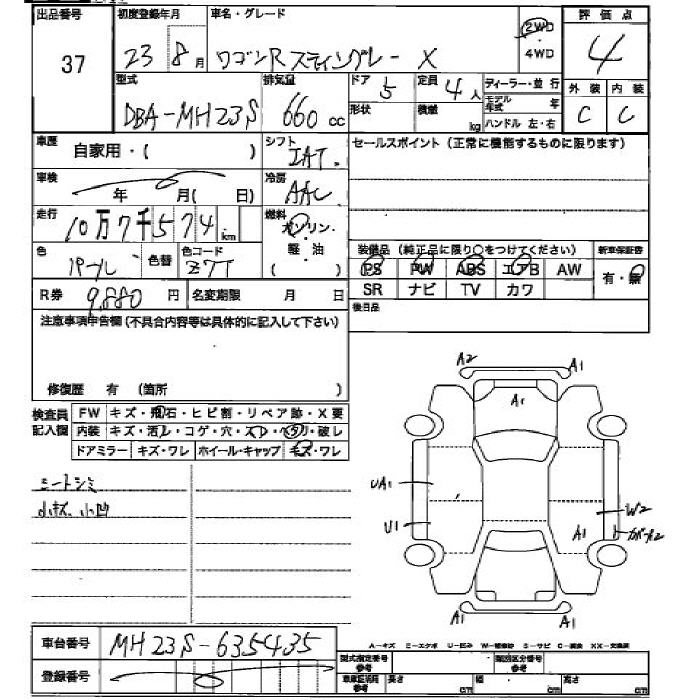 出品番号
37
初度登録年月
23 8月
車名・グレード
ワゴンR スティングレー X
2WD
・
4WD
評価点
4
外装 内装
C C
型式
DBA-MH23S
排気量
660 cc
ドア 5
定員 4人
形状
積載 kg
ディーラー・並行
モデル年式 年
ハンドル 左・右
車歴
自家用・( )
シフト
IAT
セールスポイント (正常に機能するものに限ります)
車検
年 月( 日)
冷房
AAC
走行
10万7千574km
燃料
ガソリン・
軽・油
( )
色
パール
色替
色コード
Z7T
装備品(純正品に限り○をつけてください)
新車保証書
PS PW ABS エアB AW
有・無
SR ナビ TV カワ
R券 9,880円
名変期限 月 日
後日品
注意事項申告欄(不具合内容等は具体的に記入して下さい)
修復歴 有 (箇所 )
検査員記入欄
FW キズ・飛石・ヒビ割・リペア跡・X要
内装 キズ・汚レ・コゲ・穴・スレ・ヘタリ・破レ
ドアミラー キズ・ワレ ホイール・キャップ キズ・ワレ
シートシミ
小キズ、小凹
A2
A1
A1
UA1
U1
W2
A1
A1
A1
車台番号
MH23S-635435
登録番号
A-キズ
型式指定番号 参考
類別区分番号 参考
車庫証明用 参考
長さ cm
幅 cm
高さ cm